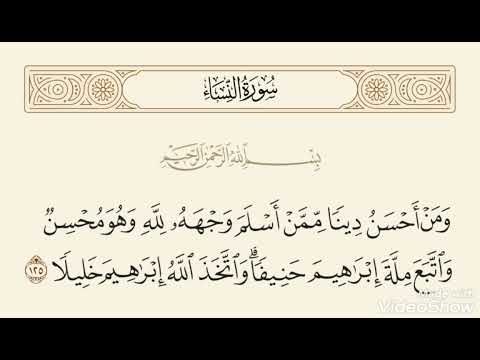 سُورَةُ النِّسَاءِ
بِسْمِ اللَّهِ الرَّحْمَٰنِ الرَّحِيمِ
وَمَنْ أَحْسَنُ دِينًا مِّمَّنْ أَسْلَمَ وَجْهَهُۥ لِلَّهِ وَهُوَ مُحْسِنٌ
وَٱتَّبَعَ مِلَّةَ إِبْرَٰهِيمَ حَنِيفًاۗ وَٱتَّخَذَ ٱللَّهُ إِبْرَٰهِيمَ خَلِيلًا ١٢٥
Made with
VideoShow